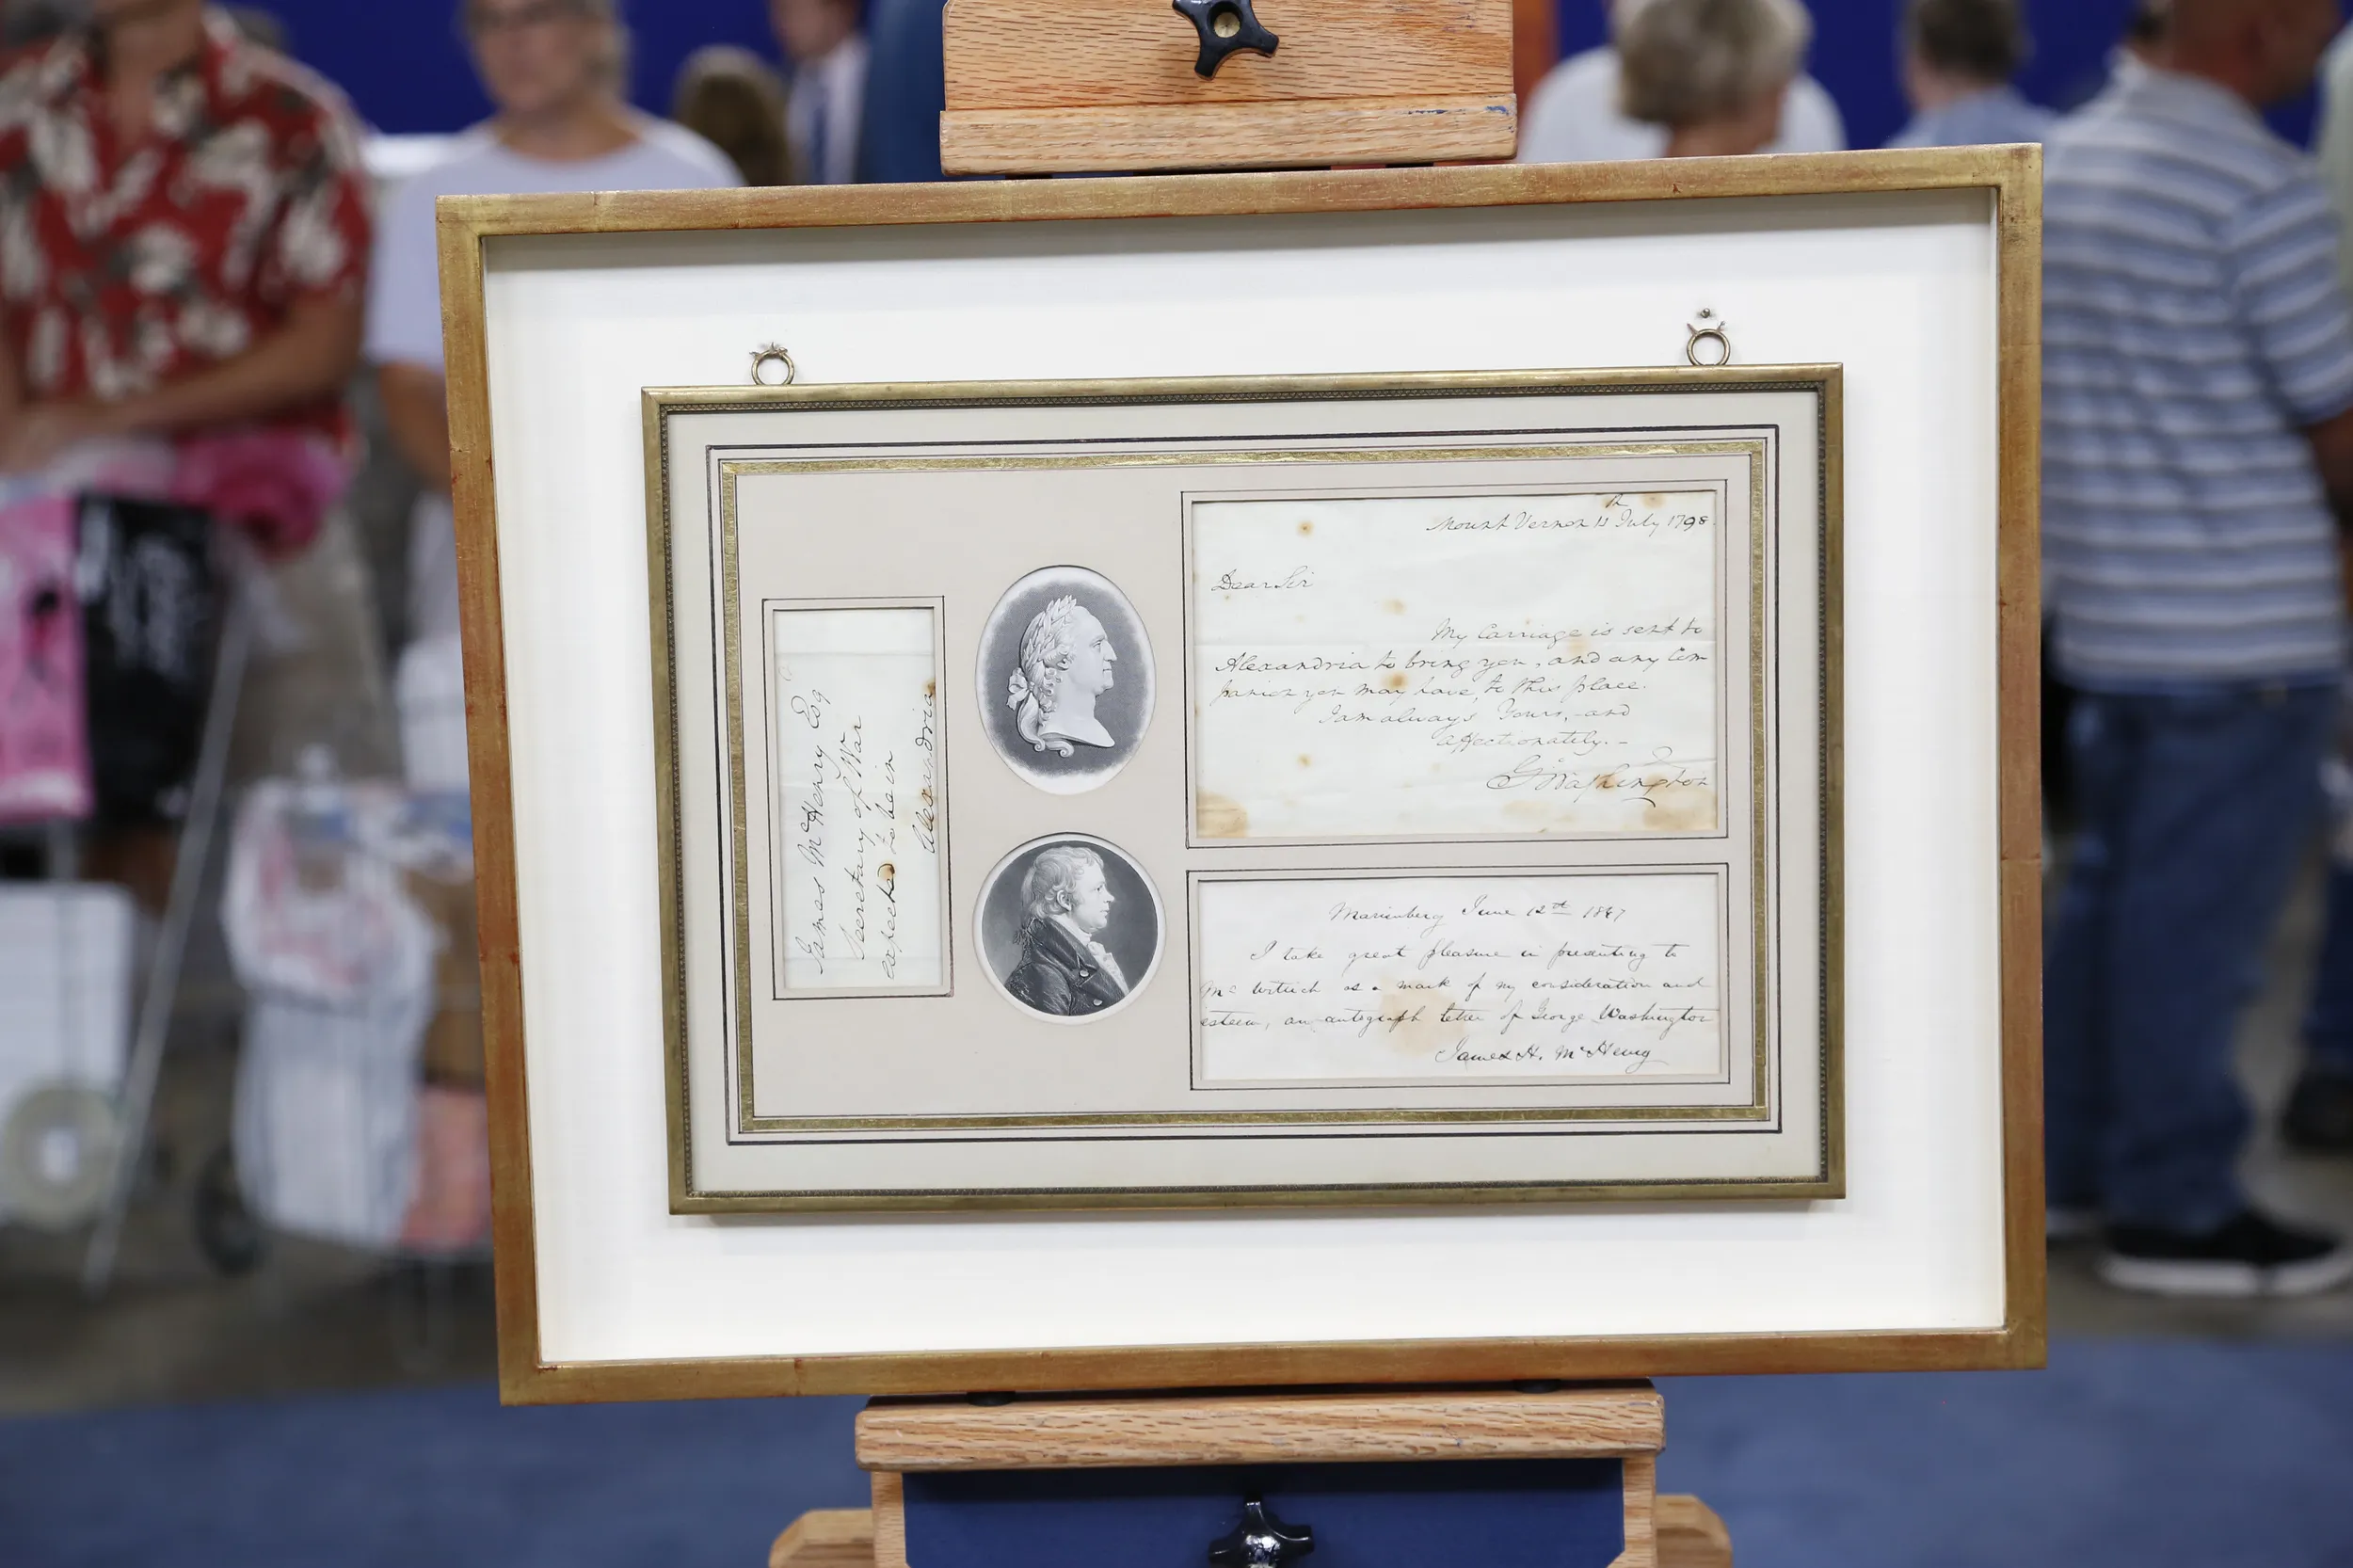 James McHenry Esq
Secretary of War
expected to be in
Alexandria
Mount Vernon 11th July 1798.
Dear Sir
My Carriage is sent to
Alexandria to bring you, and any Com
panion you may have, to this place.
I am always Yours, and
affectionately. –
G Washington
June 12th 1847
I take great pleasure in presenting to
as a mark of my consideration and
esteem, an autograph letter of George Washington
James H. McHenry